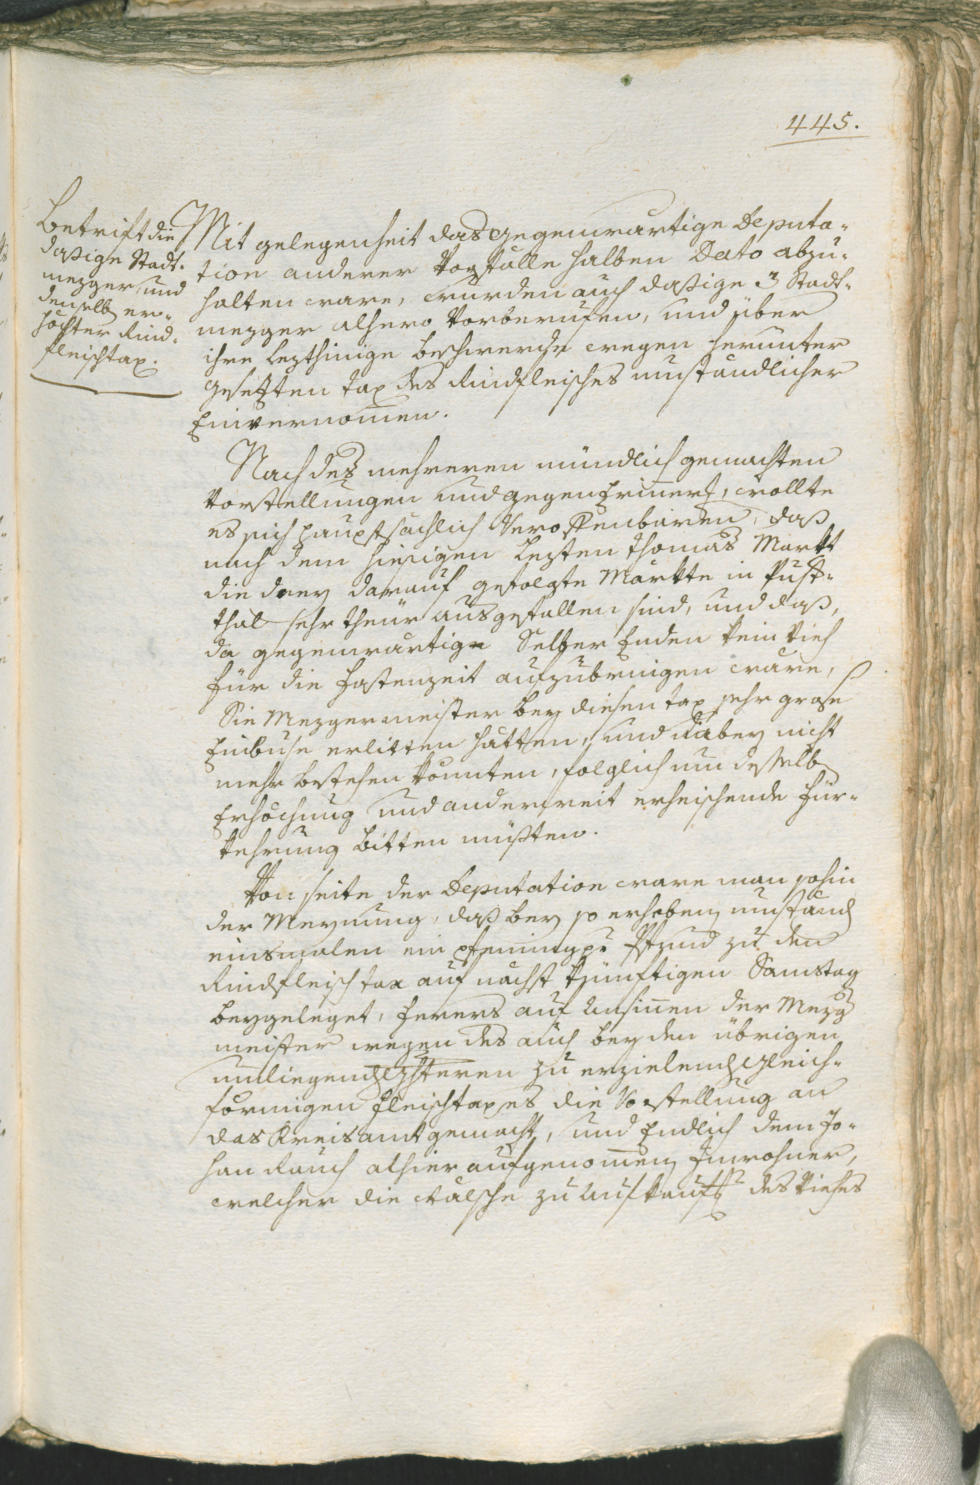 445.
Betrift die
dasige Stadt-
mezger und
denselb er-
höchter Rind-
fleischtax.
Mit gelegenheit das gegenwärtige Deputa-
tion anderer Vorfälle halben Dato abzu-
halten ware, wurden auch dasige 3 Stadt-
mezger alhero Vorberufen, und über
ihre lezthinige beschwerde wegen herunter
gesetzten tax des Rindfleisches umständlicher
Einvernomen.
Nach des mehreren mündlich gemachten
Vorstellungen und gegen Erinert, wollte
es sich hauptsächlich Veroffenbaren, daß
nach dem hiesigen lezten Thomas Markt
die drey darauf gefolgte Märkte in Pust-
thal sehr theur ausgefallen sind, und daß,
da gegenwärtig Selber Enden kein Vieh
für die Fastenzeit aufzubringen ware,
Sie Mezgermeister bey diesen tax sehr grose
Einbuse erlitten hätten, und dabey nicht
mehr bestehen könnten, folglich um desselb
Erhöchung und anderweit erheischende Für-
kehrung bitten müsten.
Von seite der Deputation ware man sohin
der Meynung, daß bey so erhoben umständ
einsmalen ein pfening pr Pfund zu den
Rindfleisch tax auf nächst künftigen Samstag
beygeleget, ferers auf Ansinen der Mezg
meister wegen des auch bey den übrigen
umliegend Ghteren zu erzielend Gleich-
förmigen Fleischtaxes die Vorstellung an
das Kreisamt gemacht, und Endlich dem Jo-
han Rauch alhier aufgenomen Inwohner,
welcher die Wälsche zu Aufkauf des Viehes